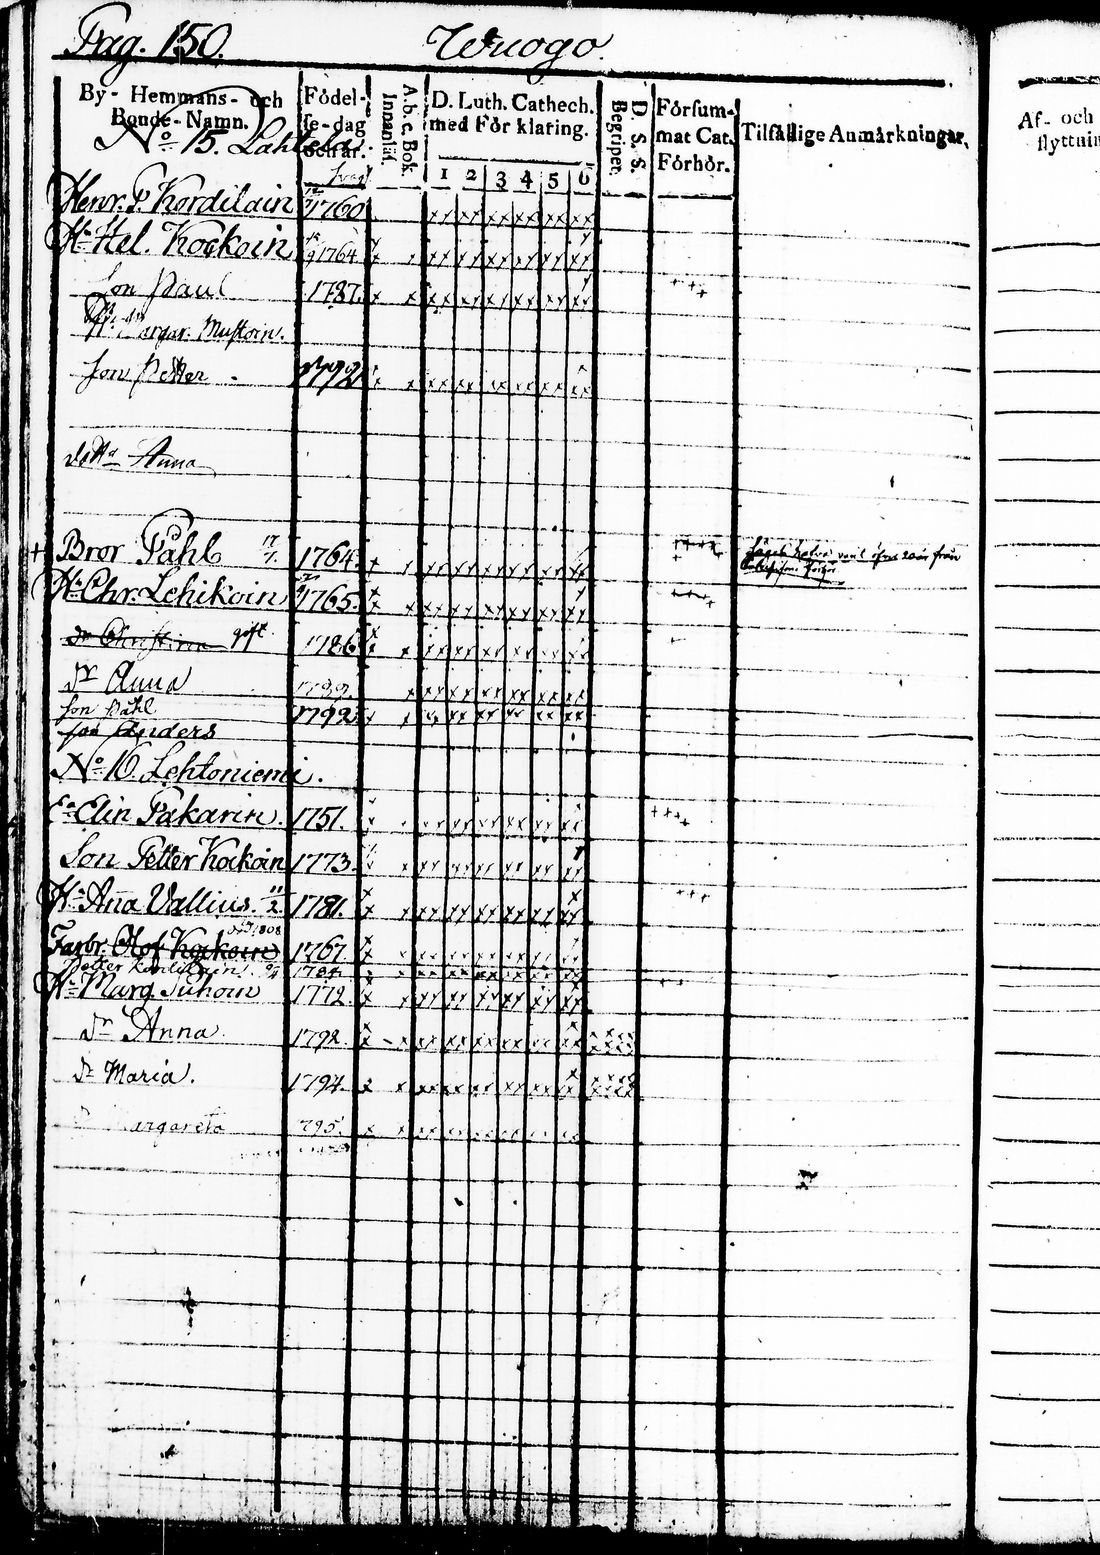 Pag. 150. Wuogo.
By- Hemmans- och Bonde-Namn.
Födel-se-dag och år.
A.b.c. Bok. Innanläs.
D. Luth. Cathech. med För klaring.
1 2 3 4 5 6
D. S. S. Begriper.
Försum-mat Cat. Förhör.
Tilfällige Anmärkningar.
Af- och
flyttnin
No 15. Lahtela.
Henr. P. Kordilain 1760
H. Hel. Kockoin 1764
Son Paul 1787.
H. Margar. Mustoin.
Son Petter 1792
Anna
Bror Påhl 17/7. 1764.
H. Chr. Lehikoin 1765.
Dr Christina gift. 1786
Dr Anna
Son Påhl 1792
Son Anders
No 16 Lehtoniemi.
Ea Elin Pakarin. 1751.
Son Petter Kockoin 1773.
H. Ana Vallius. 11/2. 1781.
Farbr. Olof Kockoin 1767.
Petter Kordilain
H. Marg. Juhoin 1772.
Dr Anna. 1792.
Dr Maria. 1794.
Margareta 795.